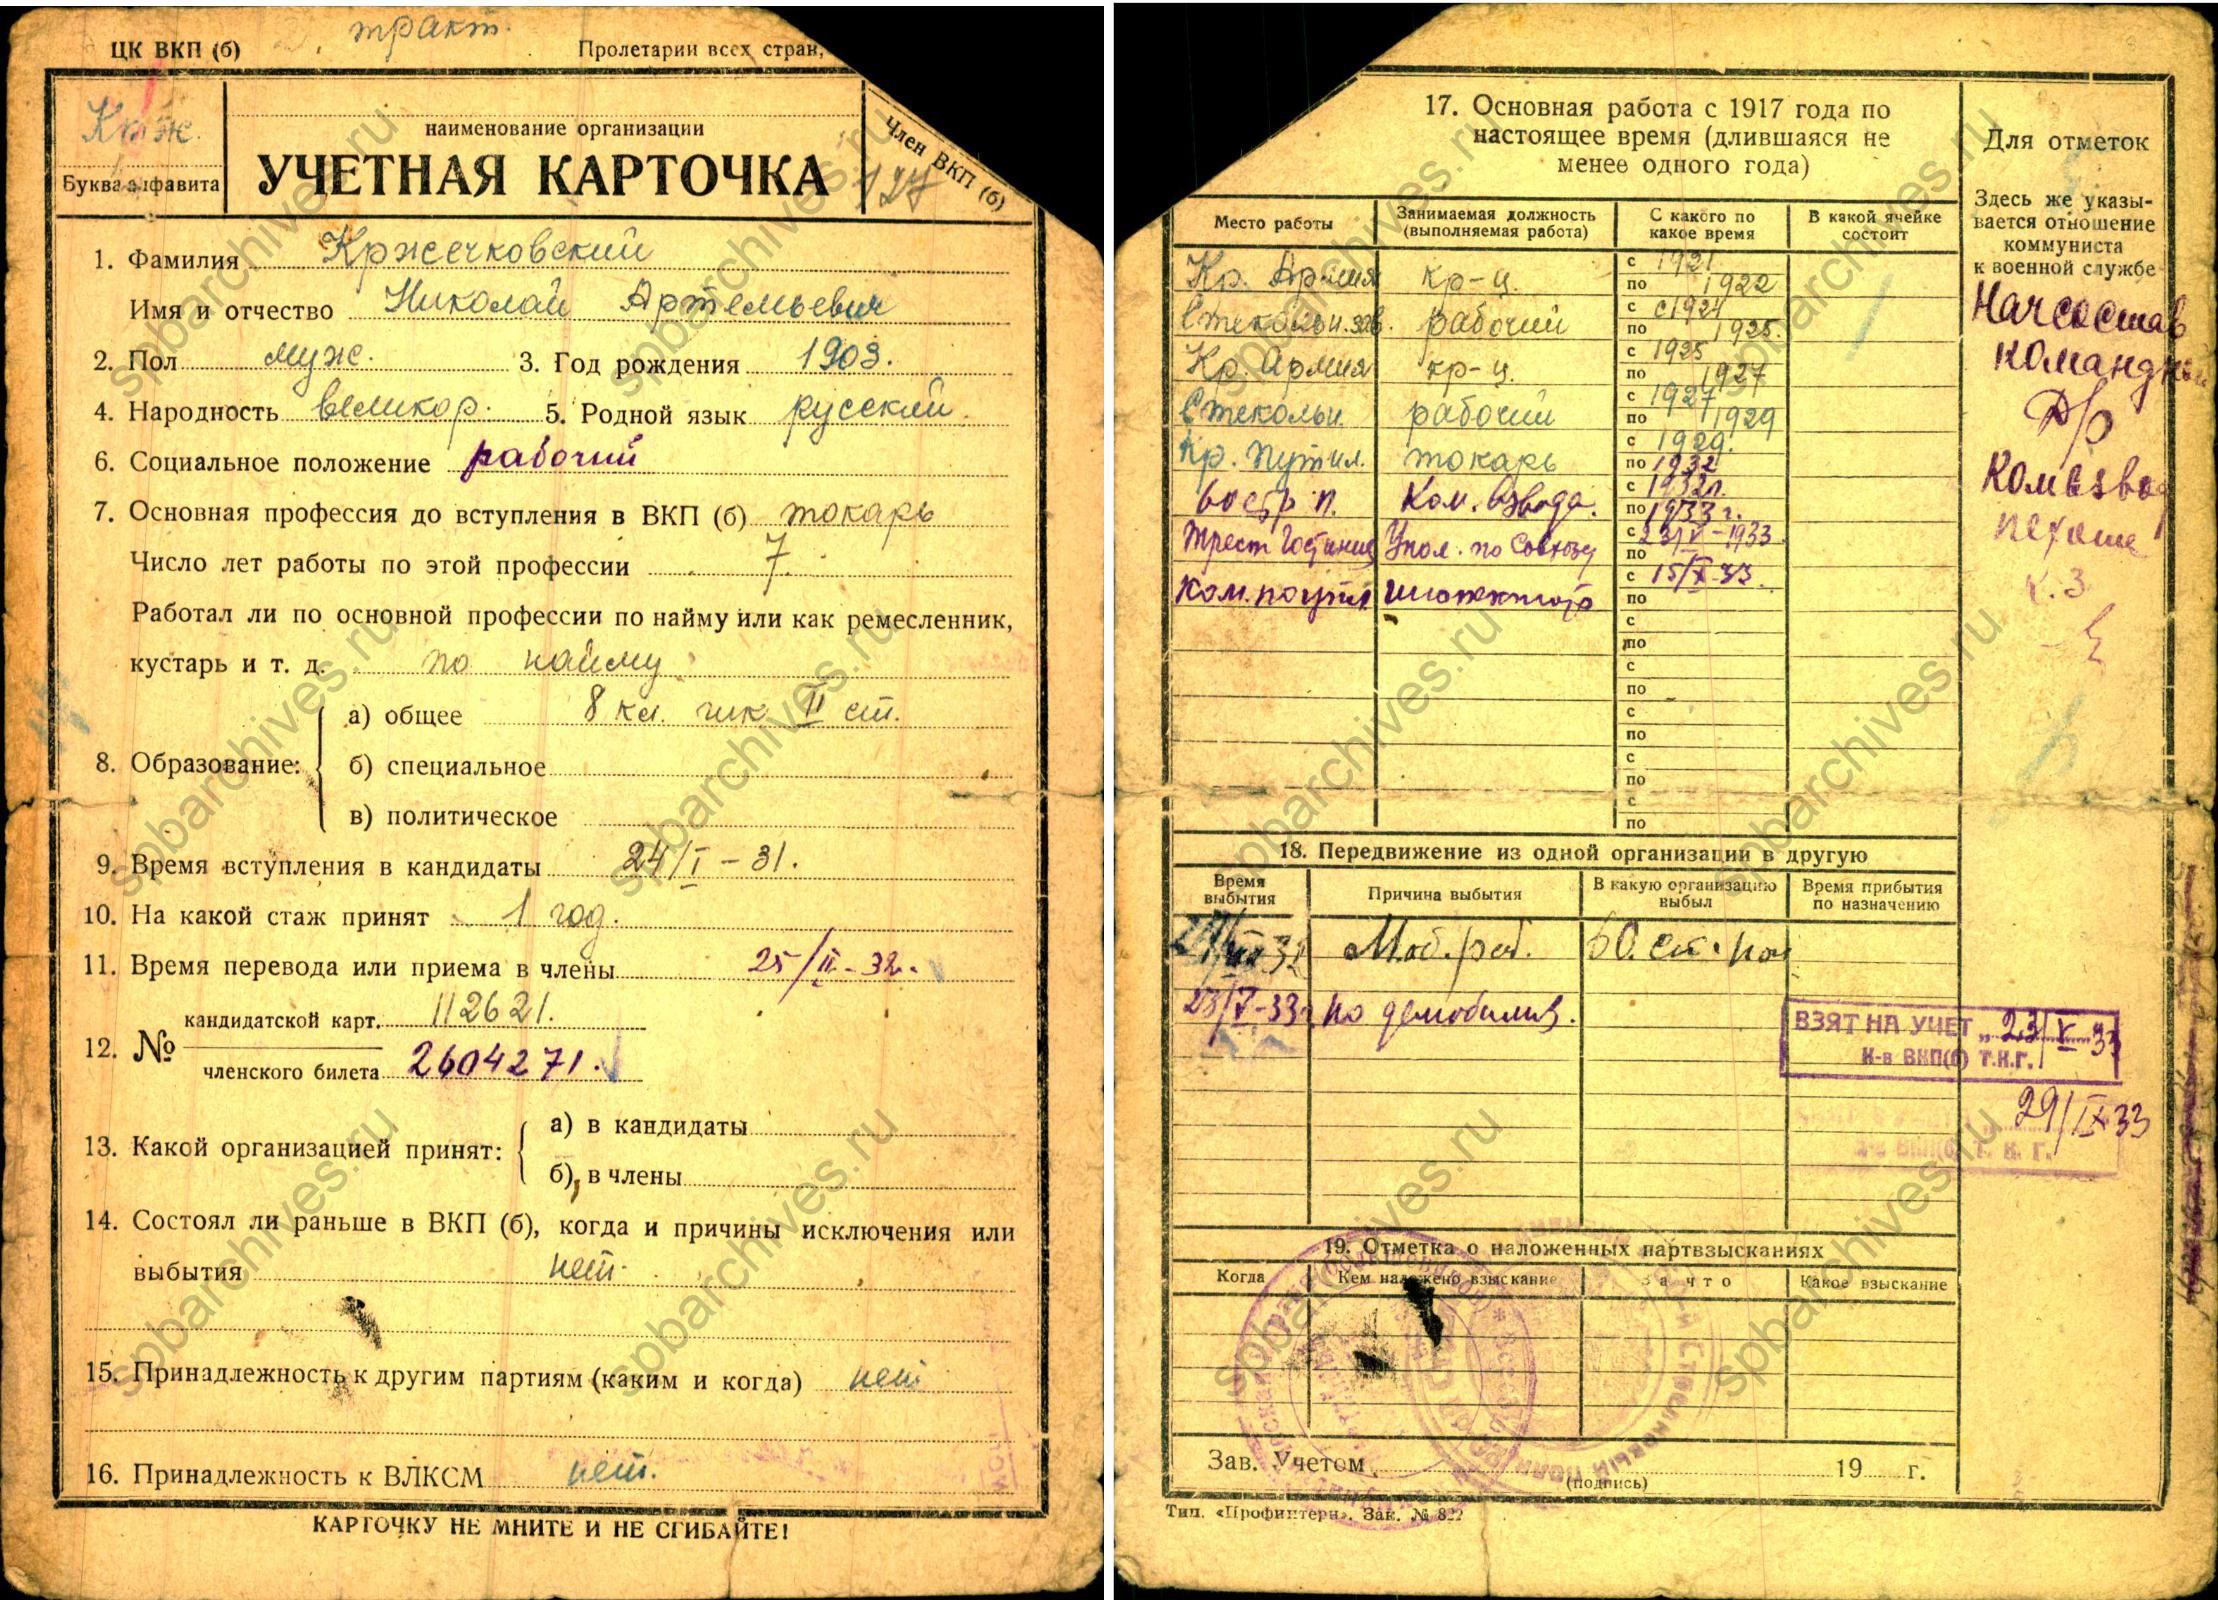 тракт.
ЦК ВКП (б)
Пролетарии всех стран,
Крж.
Буква алфавита
наименование организации
УЧЕТНАЯ КАРТОЧКА
Член ВКП (б)
127
1. Фамилия Кржечковский
Имя и отчество Николай Артемьевич
2. Пол муж. 3. Год рождения 1903.
4. Народность великор. 5. Родной язык русский.
6. Социальное положение рабочий
7. Основная профессия до вступления в ВКП (б) токарь
Число лет работы по этой профессии 7.
Работал ли по основной профессии по найму или как ремесленник,
кустарь и т. д. по найму
8. Образование:
а) общее 8 кл. II ст.
б) специальное
в) политическое
9. Время вступления в кандидаты 24/I - 31.
10. На какой стаж принят 1 год.
11. Время перевода или приема в члены 25/II - 32.
12. №
кандидатской карт. 112621.
членского билета 2604271.
13. Какой организацией принят:
а) в кандидаты
б) в члены
14. Состоял ли раньше в ВКП (б), когда и причины исключения или
выбытия нет.
15. Принадлежность к другим партиям (каким и когда) нет
16. Принадлежность к ВЛКСМ нет.
КАРТОЧКУ НЕ МНИТЕ И НЕ СГИБАЙТЕ!
17. Основная работа с 1917 года по
настоящее время (длившаяся не
менее одного года)
Место работы
Занимаемая должность
(выполняемая работа)
С какого по
какое время
В какой ячейке
состоит
Кр. Армия кр-ц. с 1921 по 1922
Стекольн. зав. рабочий с с1924 по 1925.
Кр. Армия кр-ц. с 1925 по 1927
Стекольн. рабочий с 1927 по 1929
Кр. Путил. токарь с 1929. по 1932
Ком. взвода. с 1932г. по 1933г.
Трест Гостиниц с 23/V-1933 по
с 15/X-33. по
с
по
с
по
с
по
с
по
с
по
Для отметок
Здесь же указы-
вается отношение
коммуниста
к военной службе
Начсостав
Р/о
Комвзвод
18. Передвижение из одной организации в другую
Время
выбытия
Причина выбытия
В какую организацию
выбыл
Время прибытия
по назначению
Моб. 60. ст.
23/V-33г. по демобилиз.
ВЗЯТ НА УЧЕТ „23/V 33
К-в ВКП(б) Т.К.Г.
29/IX 33
19. Отметка о наложенных партвзысканиях
Когда
Кем наложено взыскание
За что
Какое взыскание
Зав. Учетом 19 г.
(подпись)
Тип. «Профинтерн». Зак. № 822
spbarchives.ru